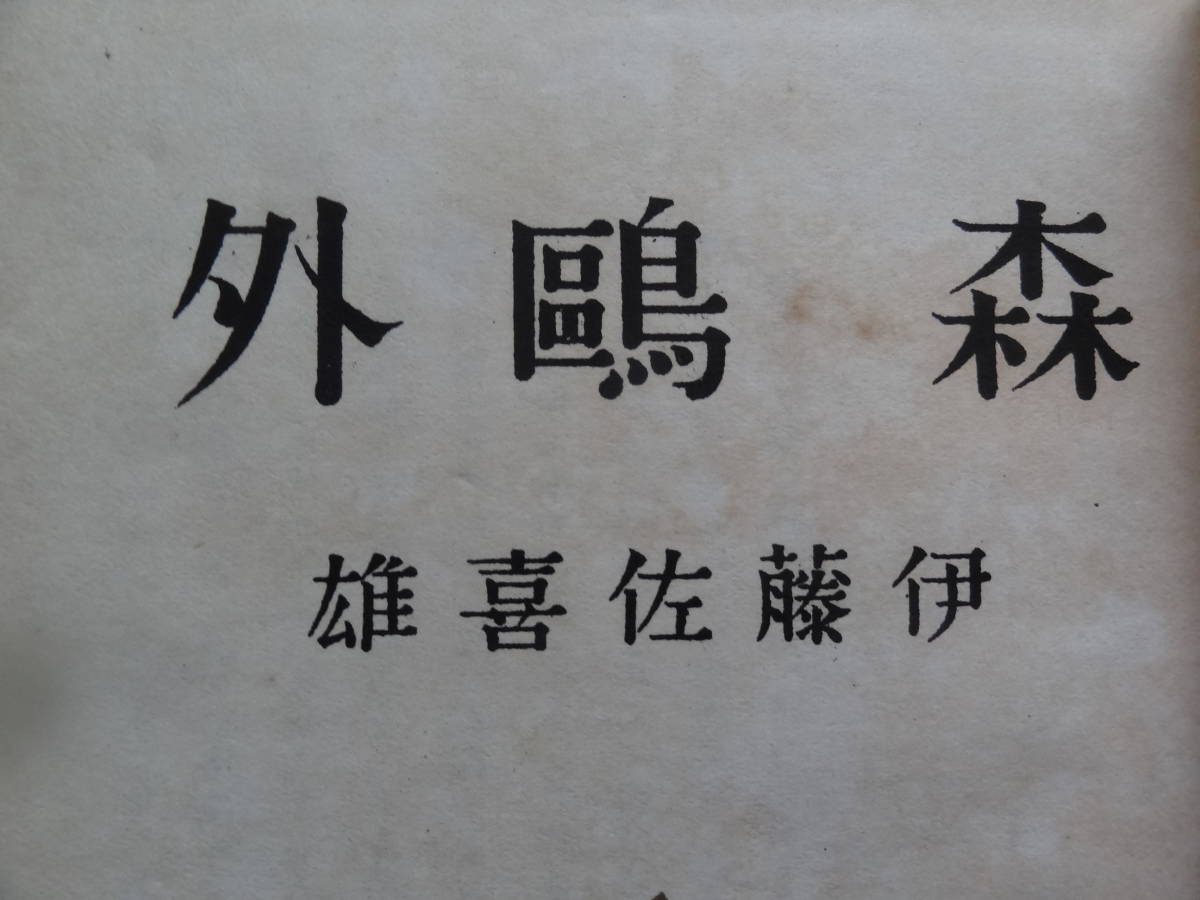 森鷗外
伊藤佐喜雄